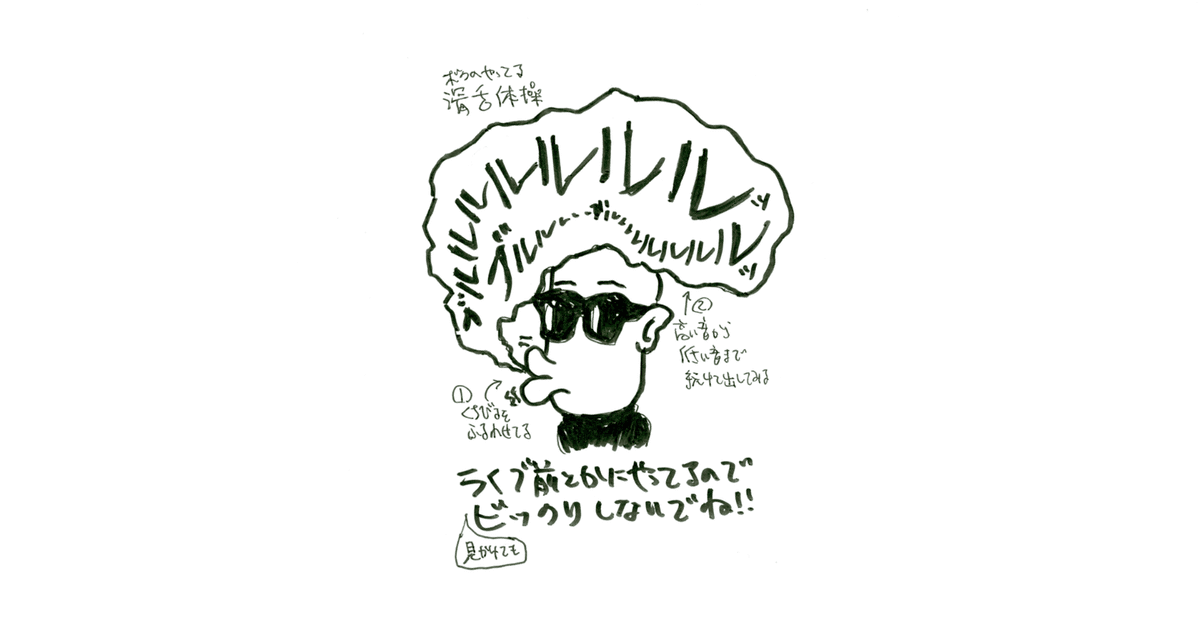 ボクのやってる
滑舌体操
ブルルルルルルルルッ
ブルルル……ブルルルルルルッ
①
くちびるを
ふるわせてる
②
高い音から
低い音まで
続けて出してみる
らくご前とかにやってるので
ビックリしないでね!!
見かけても